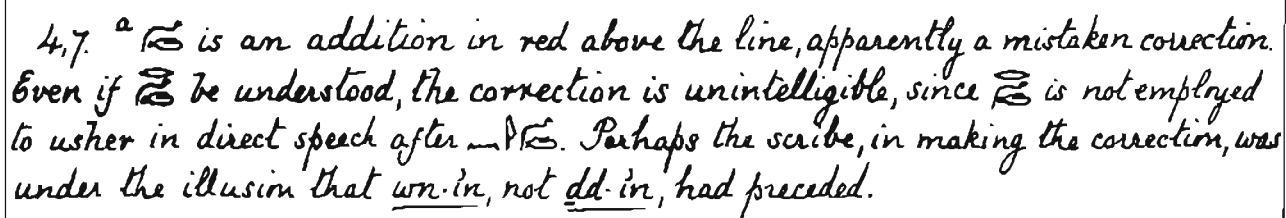 4,7. ᵃ 𓆓𓂧 is an addition in red above the line, apparently a mistaken correction.
Even if 𓂋𓆓𓂧 be understood, the correction is unintelligible, since 𓂋𓆓𓂧 is not employed
to usher in direct speech after 𓆓𓂧𓇋𓈖. Perhaps the scribe, in making the correction, was
under the illusion that wn·ỉn, not ḏd·ỉn, had preceded.